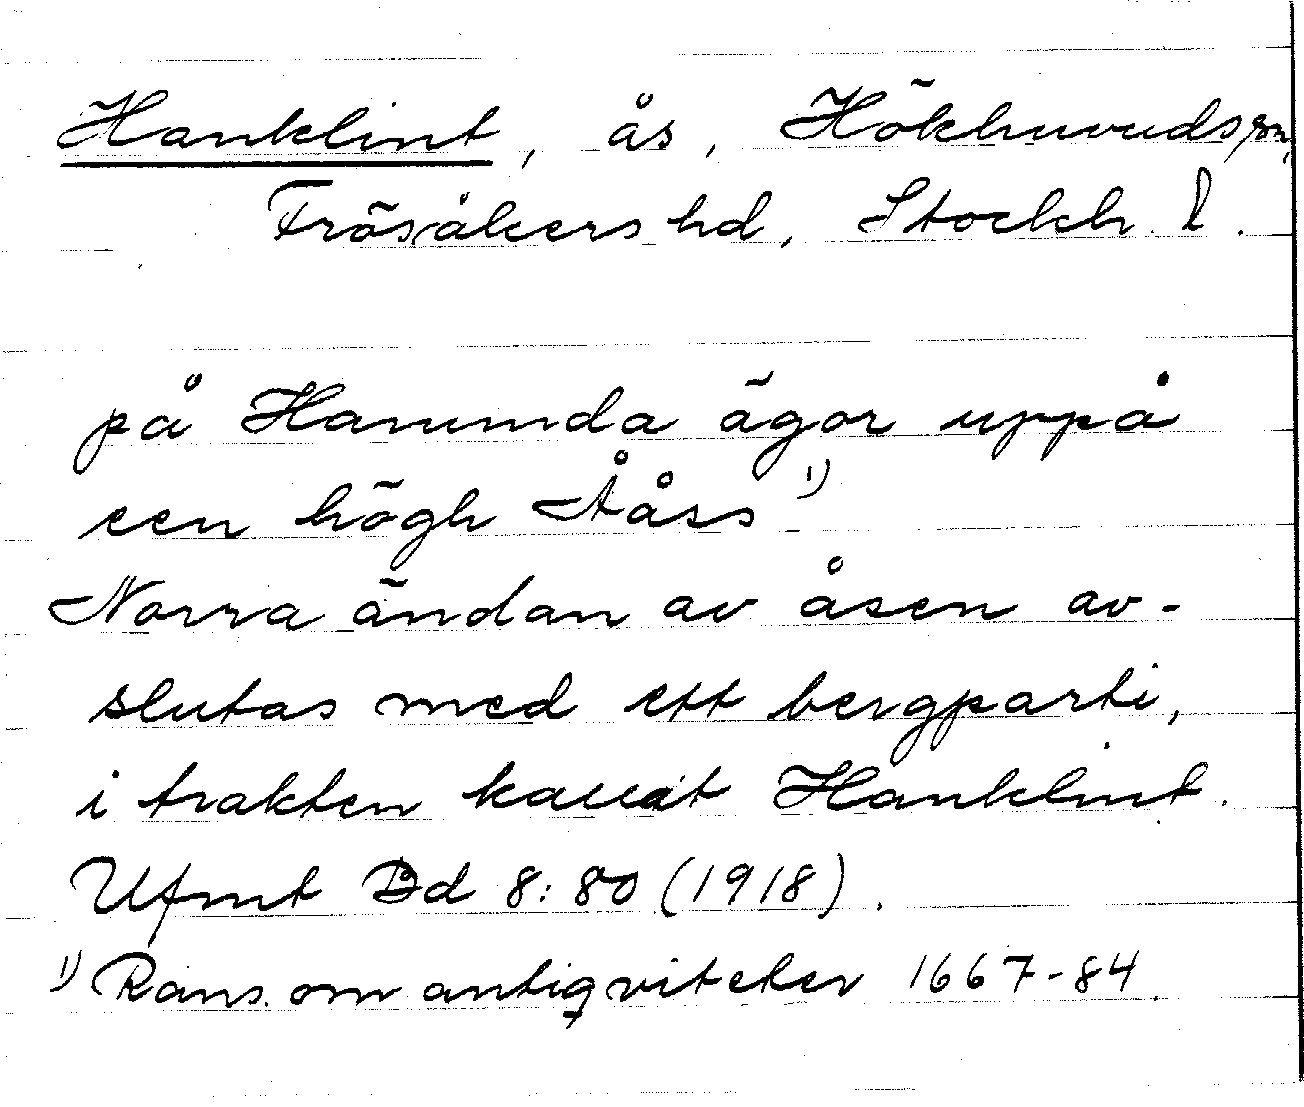 Hanklint, ås, Hökhuvuds sn,
Frösåkers hd, Stockh. l.
på Hanunda ägor uppå
een högh Åås 1)
Norra ändan av åsen av-
slutas med ett bergparti,
i trakten kallat Hanklint.
Ufmt Bd 8:80 (1918).
1) Rans. om antiqviteter 1667-84.